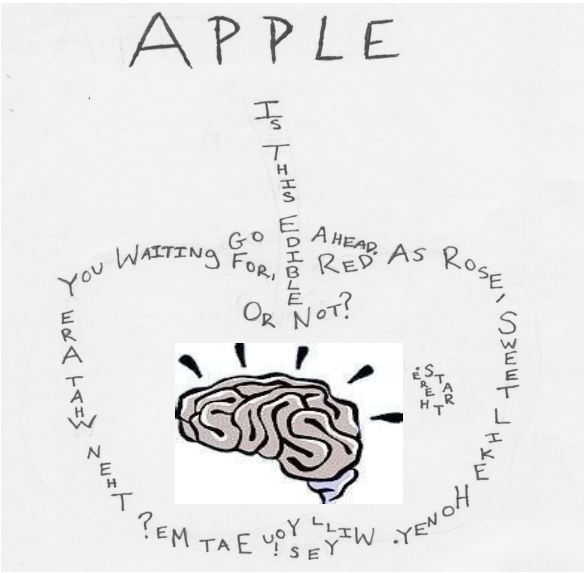 APPLE
Is
This
Edible
Or Not?
Start Here:
Red As Rose, Sweet Like Honey. Will You Eat Me?
Yes!
Then What Are You Waiting For,
Go Ahead.